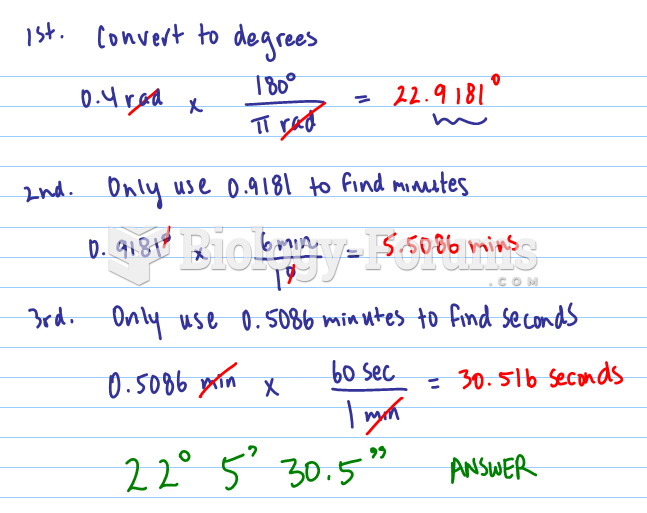 1st. Convert to degrees
0.4 rad x 180° / π rad = 22.9181°
2nd. Only use 0.9181 to find minutes
0.9181° x 6 min / 1° = 5.5086 mins
Biology-Forums
.COM
3rd. Only use 0.5086 minutes to find seconds
0.5086 min x 60 sec / 1 min = 30.516 seconds
22° 5' 30.5" ANSWER